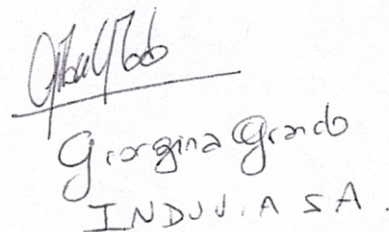 Georgina Grando
INDUVIA SA.